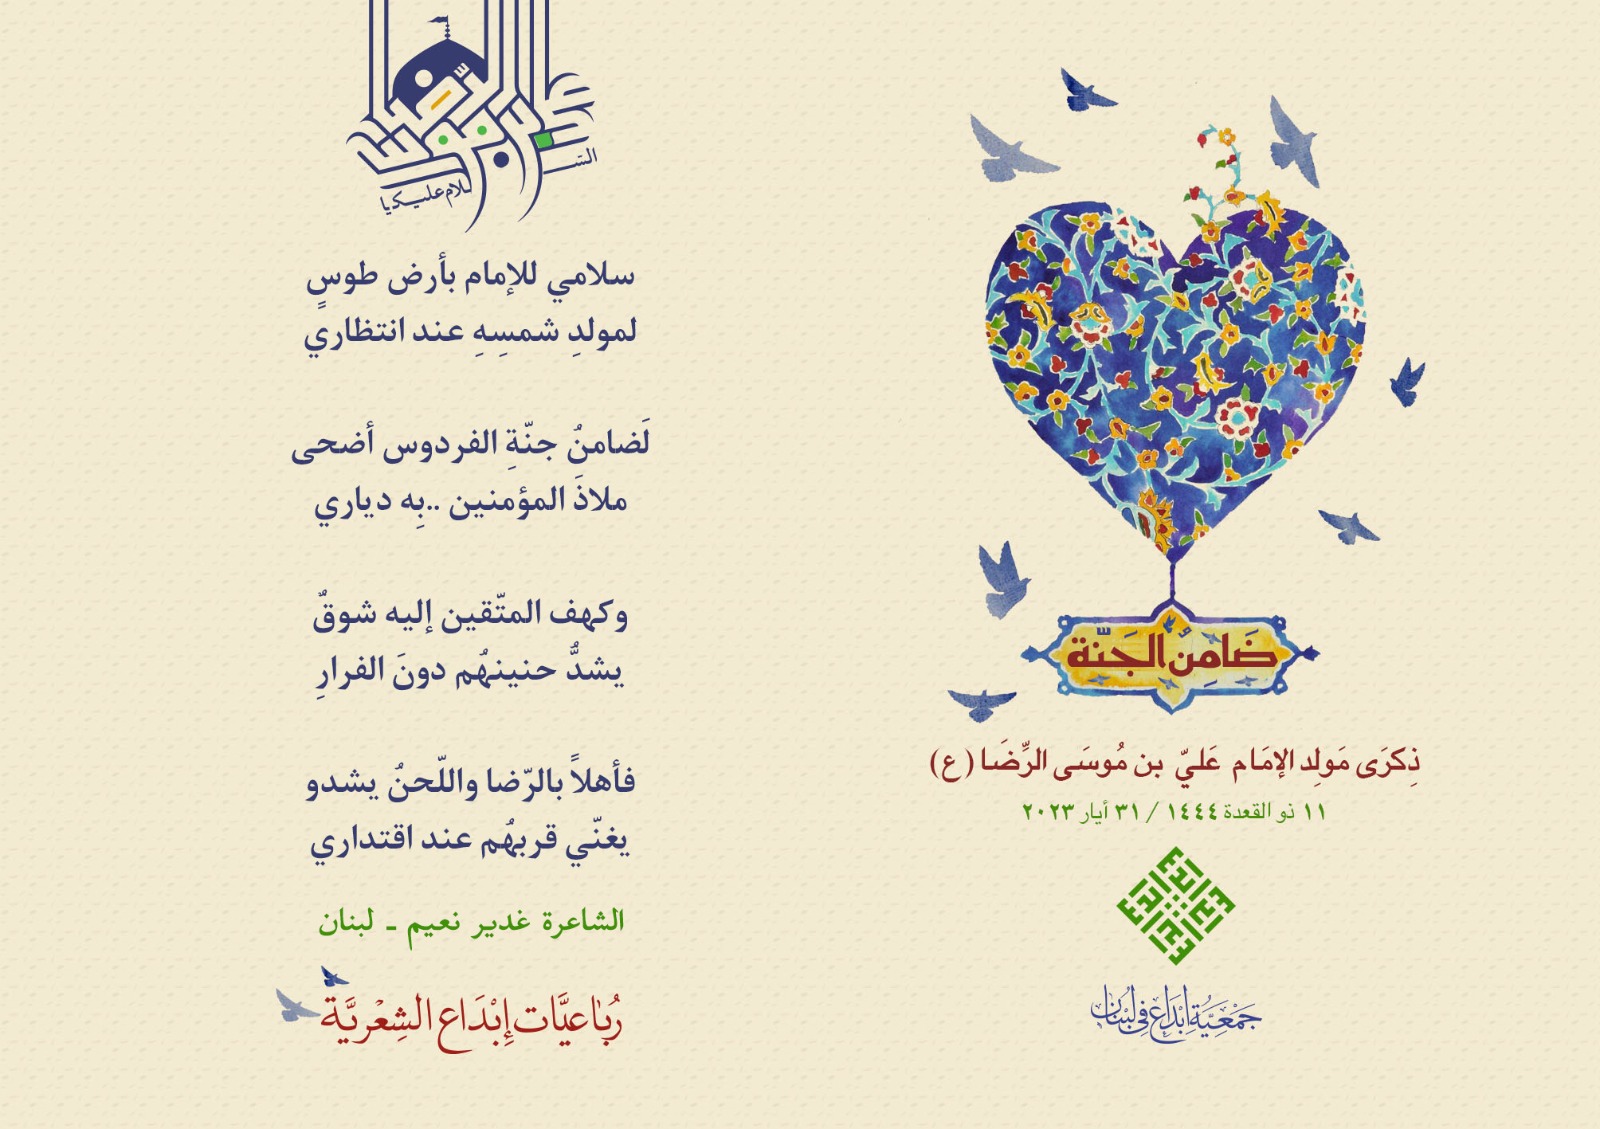 ضَامِنُ الجَنَّة
ذِكرَى مَولِد الإمَام عَليّ بن مُوسَى الرِّضَا (ع)
١١ ذو القعدة ١٤٤٤ / ٣١ أيار ٢٠٢٣
إبداع
جَمْعِيَّة إبْدَاع فِي لُبْنَان
السّلام عليك يا
علي بن موسى الرضا
سلامي للإمام بأرض طوسٍ
لمولدِ شمسِهِ عند انتظاري
لَضامنُ جنّةِ الفردوس أضحى
ملاذَ المؤمنين ..بِه دياري
وكهف المتّقين إليه شوقٌ
يشدُّ حنينهُم دونَ الفرارِ
فأهلاً بالرّضا واللّحنُ يشدو
يغنّي قربهُم عند اقتداري
الشاعرة غدير نعيم ـ لبنان
رُبَاعيَّات إِبْدَاع الشِعْريَّة